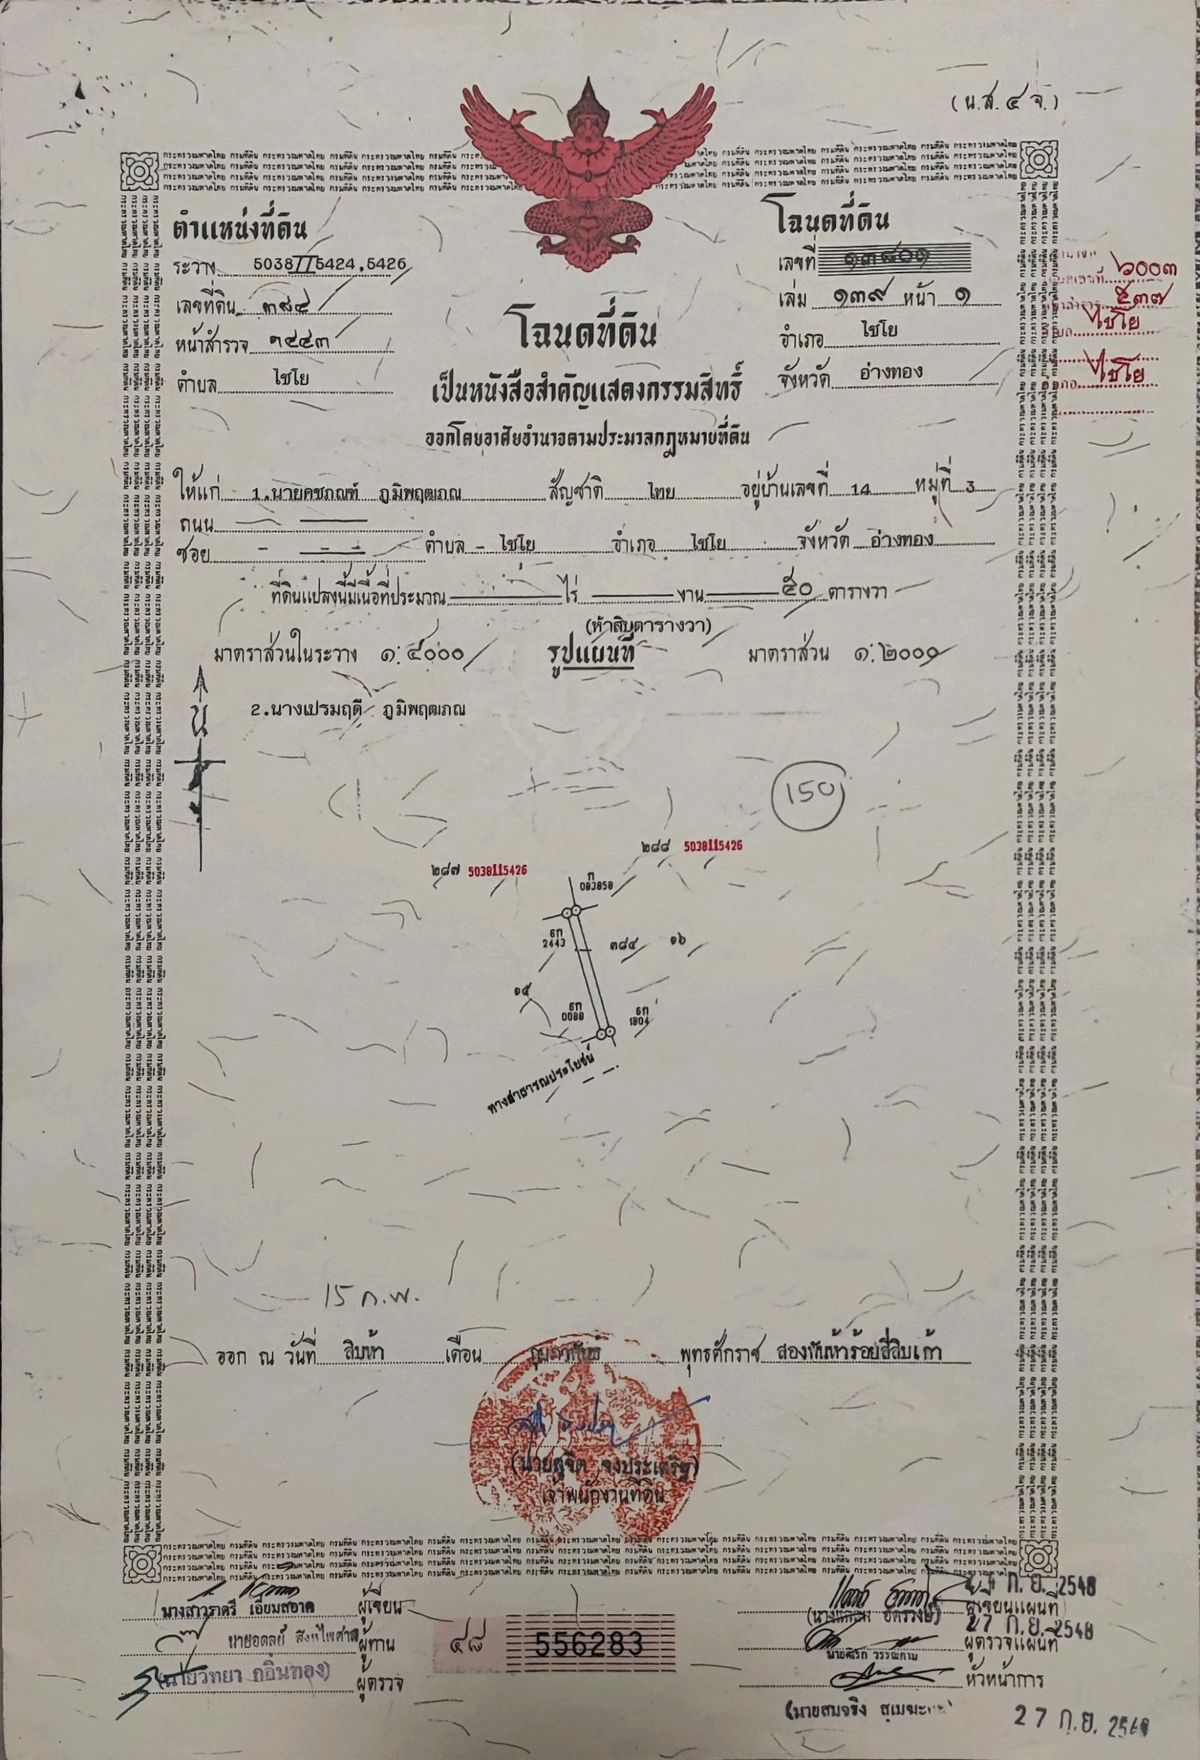 (น.ส.๔ จ.)
ตำแหน่งที่ดิน
ระวาง 5038II5424,5426
เลขที่ดิน ๓๘๔
หน้าสำรวจ ๑๔๔๓
ตำบล ไชโย
โฉนดที่ดิน
เลขที่ ๑๓๘๐๑
เล่ม ๑๓๙ หน้า ๑
อำเภอ ไชโย
จังหวัด อ่างทอง
๖๐๐๓
๕๓๗
ไชโย
ไชโย
โฉนดที่ดิน
เป็นหนังสือสำคัญแสดงกรรมสิทธิ์
ออกโดยอาศัยอำนาจตามประมวลกฎหมายที่ดิน
ให้แก่ 1.นายคชภณฑ์ ภูมิพฤฒภณ สัญชาติ ไทย อยู่บ้านเลขที่ 14 หมู่ที่ 3
ถนน
ซอย - ตำบล - ไชโย อำเภอ ไชโย จังหวัด อ่างทอง
ที่ดินแปลงนี้มีเนื้อที่ประมาณ ไร่ งาน ๕๐ ตารางวา
(ห้าสิบตารางวา)
มาตราส่วนในระวาง ๑:๔๐๐๐ รูปแผนที่ มาตราส่วน ๑:๒๐๐๐
น
2.นางเปรมฤดี ภูมิพฤฒภณ
150
๒๘๗ 5038ii5426
๒๘๘ 5038ii5426
ก
083858
6ก
2443
๓๘๔ ๑๖
๑๕
6ก
0088
6ก
1804
ทางสาธารณประโยชน์
15 ก.พ.
ออก ณ วันที่ สิบห้า เดือน กุมภาพันธ์ พุทธศักราช สองพันห้าร้อยสี่สิบเก้า
(นายสุจิต จงประเสริฐ)
เจ้าพนักงานที่ดิน
นางสาวราตรี เอี่ยมสอาด ผู้เขียน
ผู้ทาน
(นายวิทยา กอินทอง) ผู้ตรวจ
๔๘ 556283
ก.ย. 2548
ผู้เขียนแผนที่
27 ก.ย. 2548
ผู้ตรวจแผนที่
หัวหน้าการ
27 ก.ย. 2548